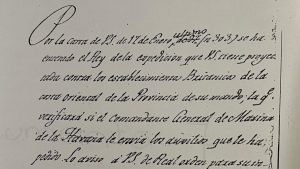 Por la carta de V.S. de 17 de Enero último
de 807 (n 303) se ha
enterado el Rey de la expedicion que V.S. tiene proyec-
tada contra los establecimientos Británicos de la
costa oriental de la Provincia de su mando, la q.e
verificará si el Comandante General de Marina
de la Havana le envia los auxilios que le ha
pedido. Lo aviso á V.S. de Real orden para su in-